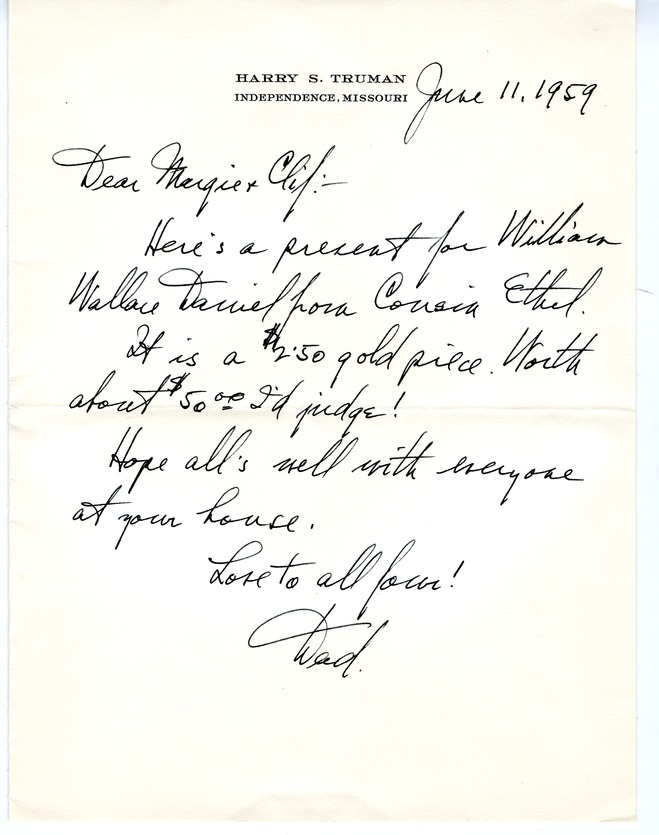 HARRY S. TRUMAN
INDEPENDENCE, MISSOURI
June 11, 1959
Dear Margie & Clif:—
Here's a present for William
Wallace Daniel from Cousin Ethel.
It is a $2.50 gold piece. Worth
about $50.00 I'd judge!
Hope all's well with everyone
at your house.
Love to all four!
Dad.